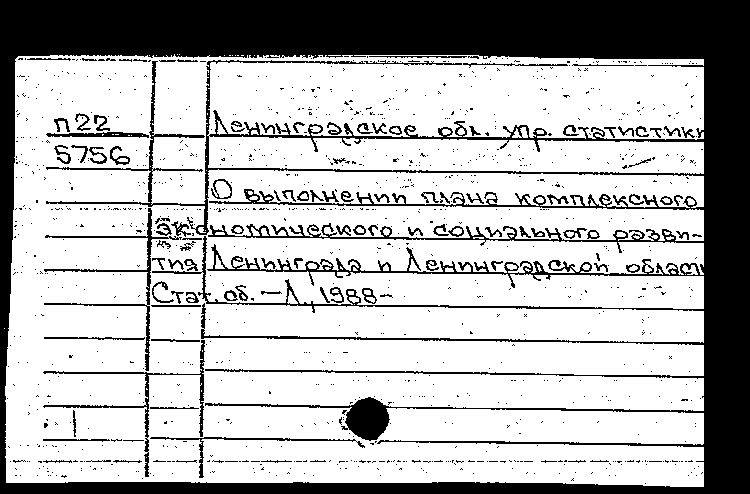 п22
Ленинградское обл. упр. статистики
5756
О выполнении плана комплексного
экономического и социального разви-
тия Ленинграда и Ленинградской област
Стат. сб. — Л., 1988-